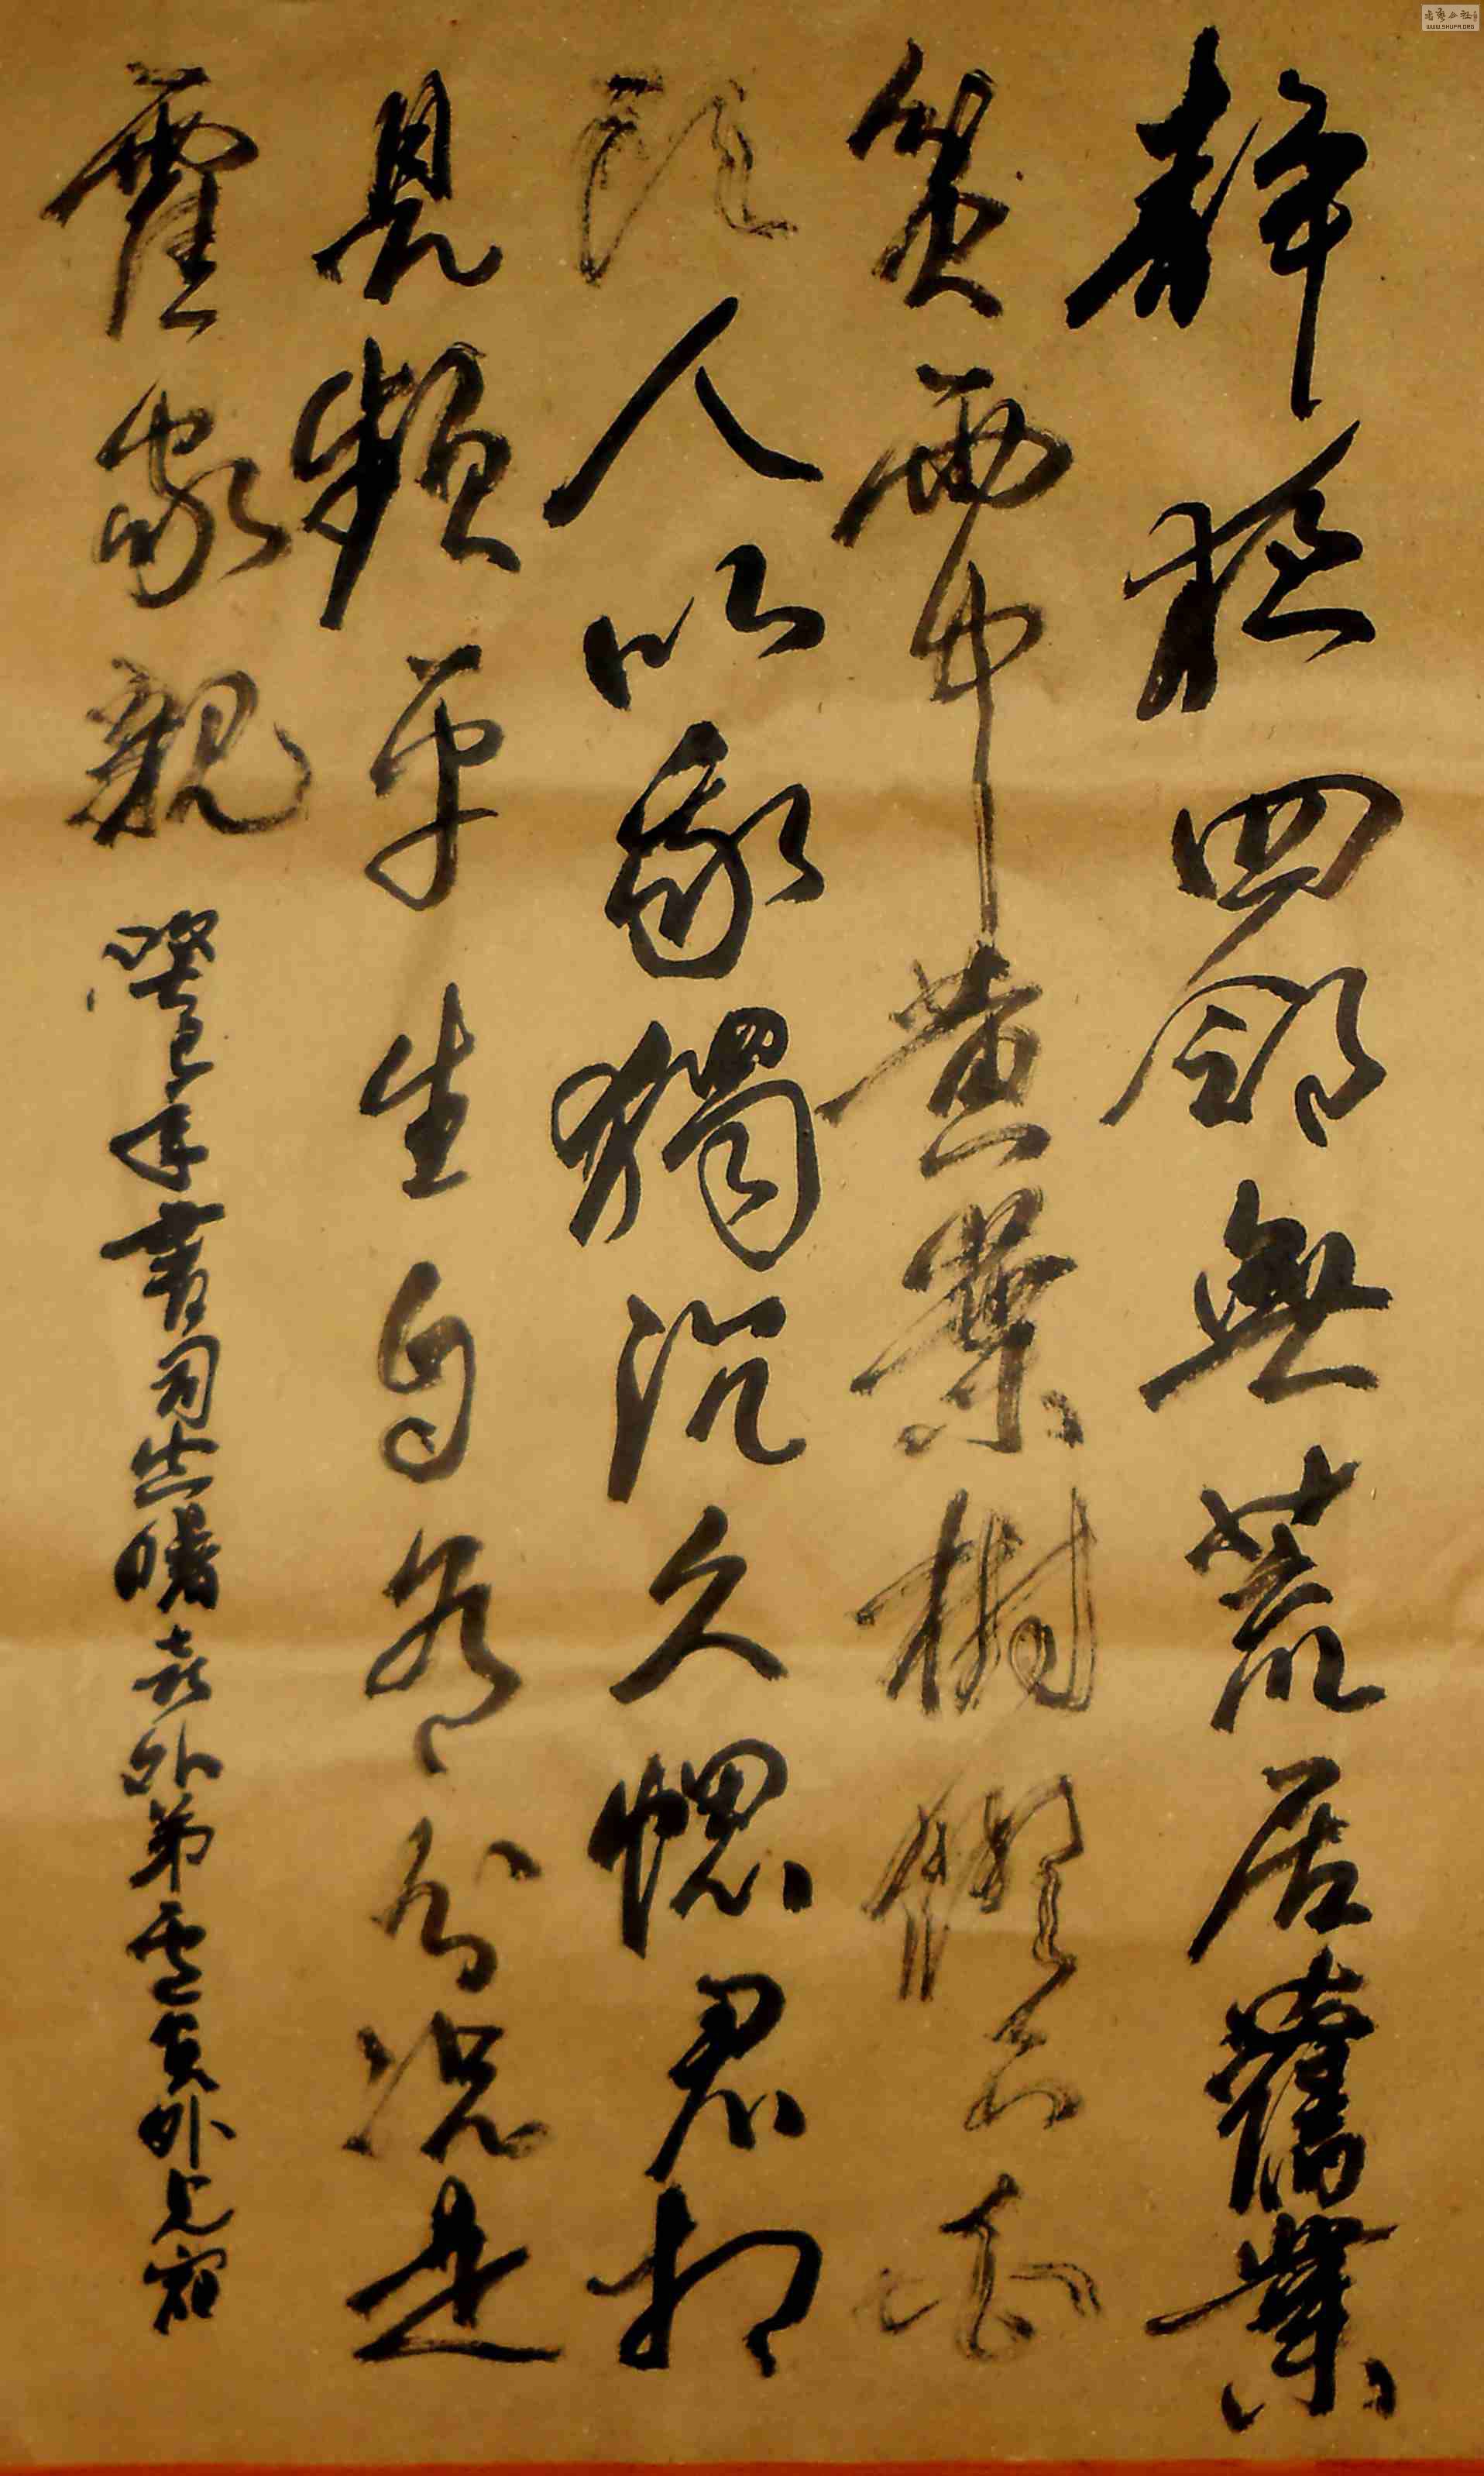 靜夜四鄰無荒居舊業
貧雨中黃葉樹燈下白
頭人以我獨沉久愧君相
見頻平生自有分況是
霍家親 癸巳年書司空曙喜外弟盧員外見宿
WWW.SHUFA.ORG